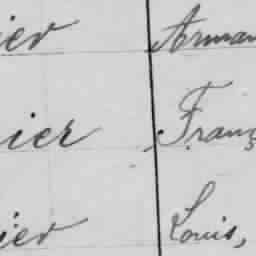 ier Arman
ier Franç
ier Louis,